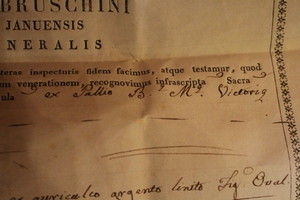 BRUSCHINI
JANUENSIS
NERALIS
teras inspecturis fidem facimus, atque testamur, quod
um venerationem, recognovimus infrascripta Sacra
ula ex Pallio B. M. Victoriæ
ex auricalco argento linito Fig. Oval.